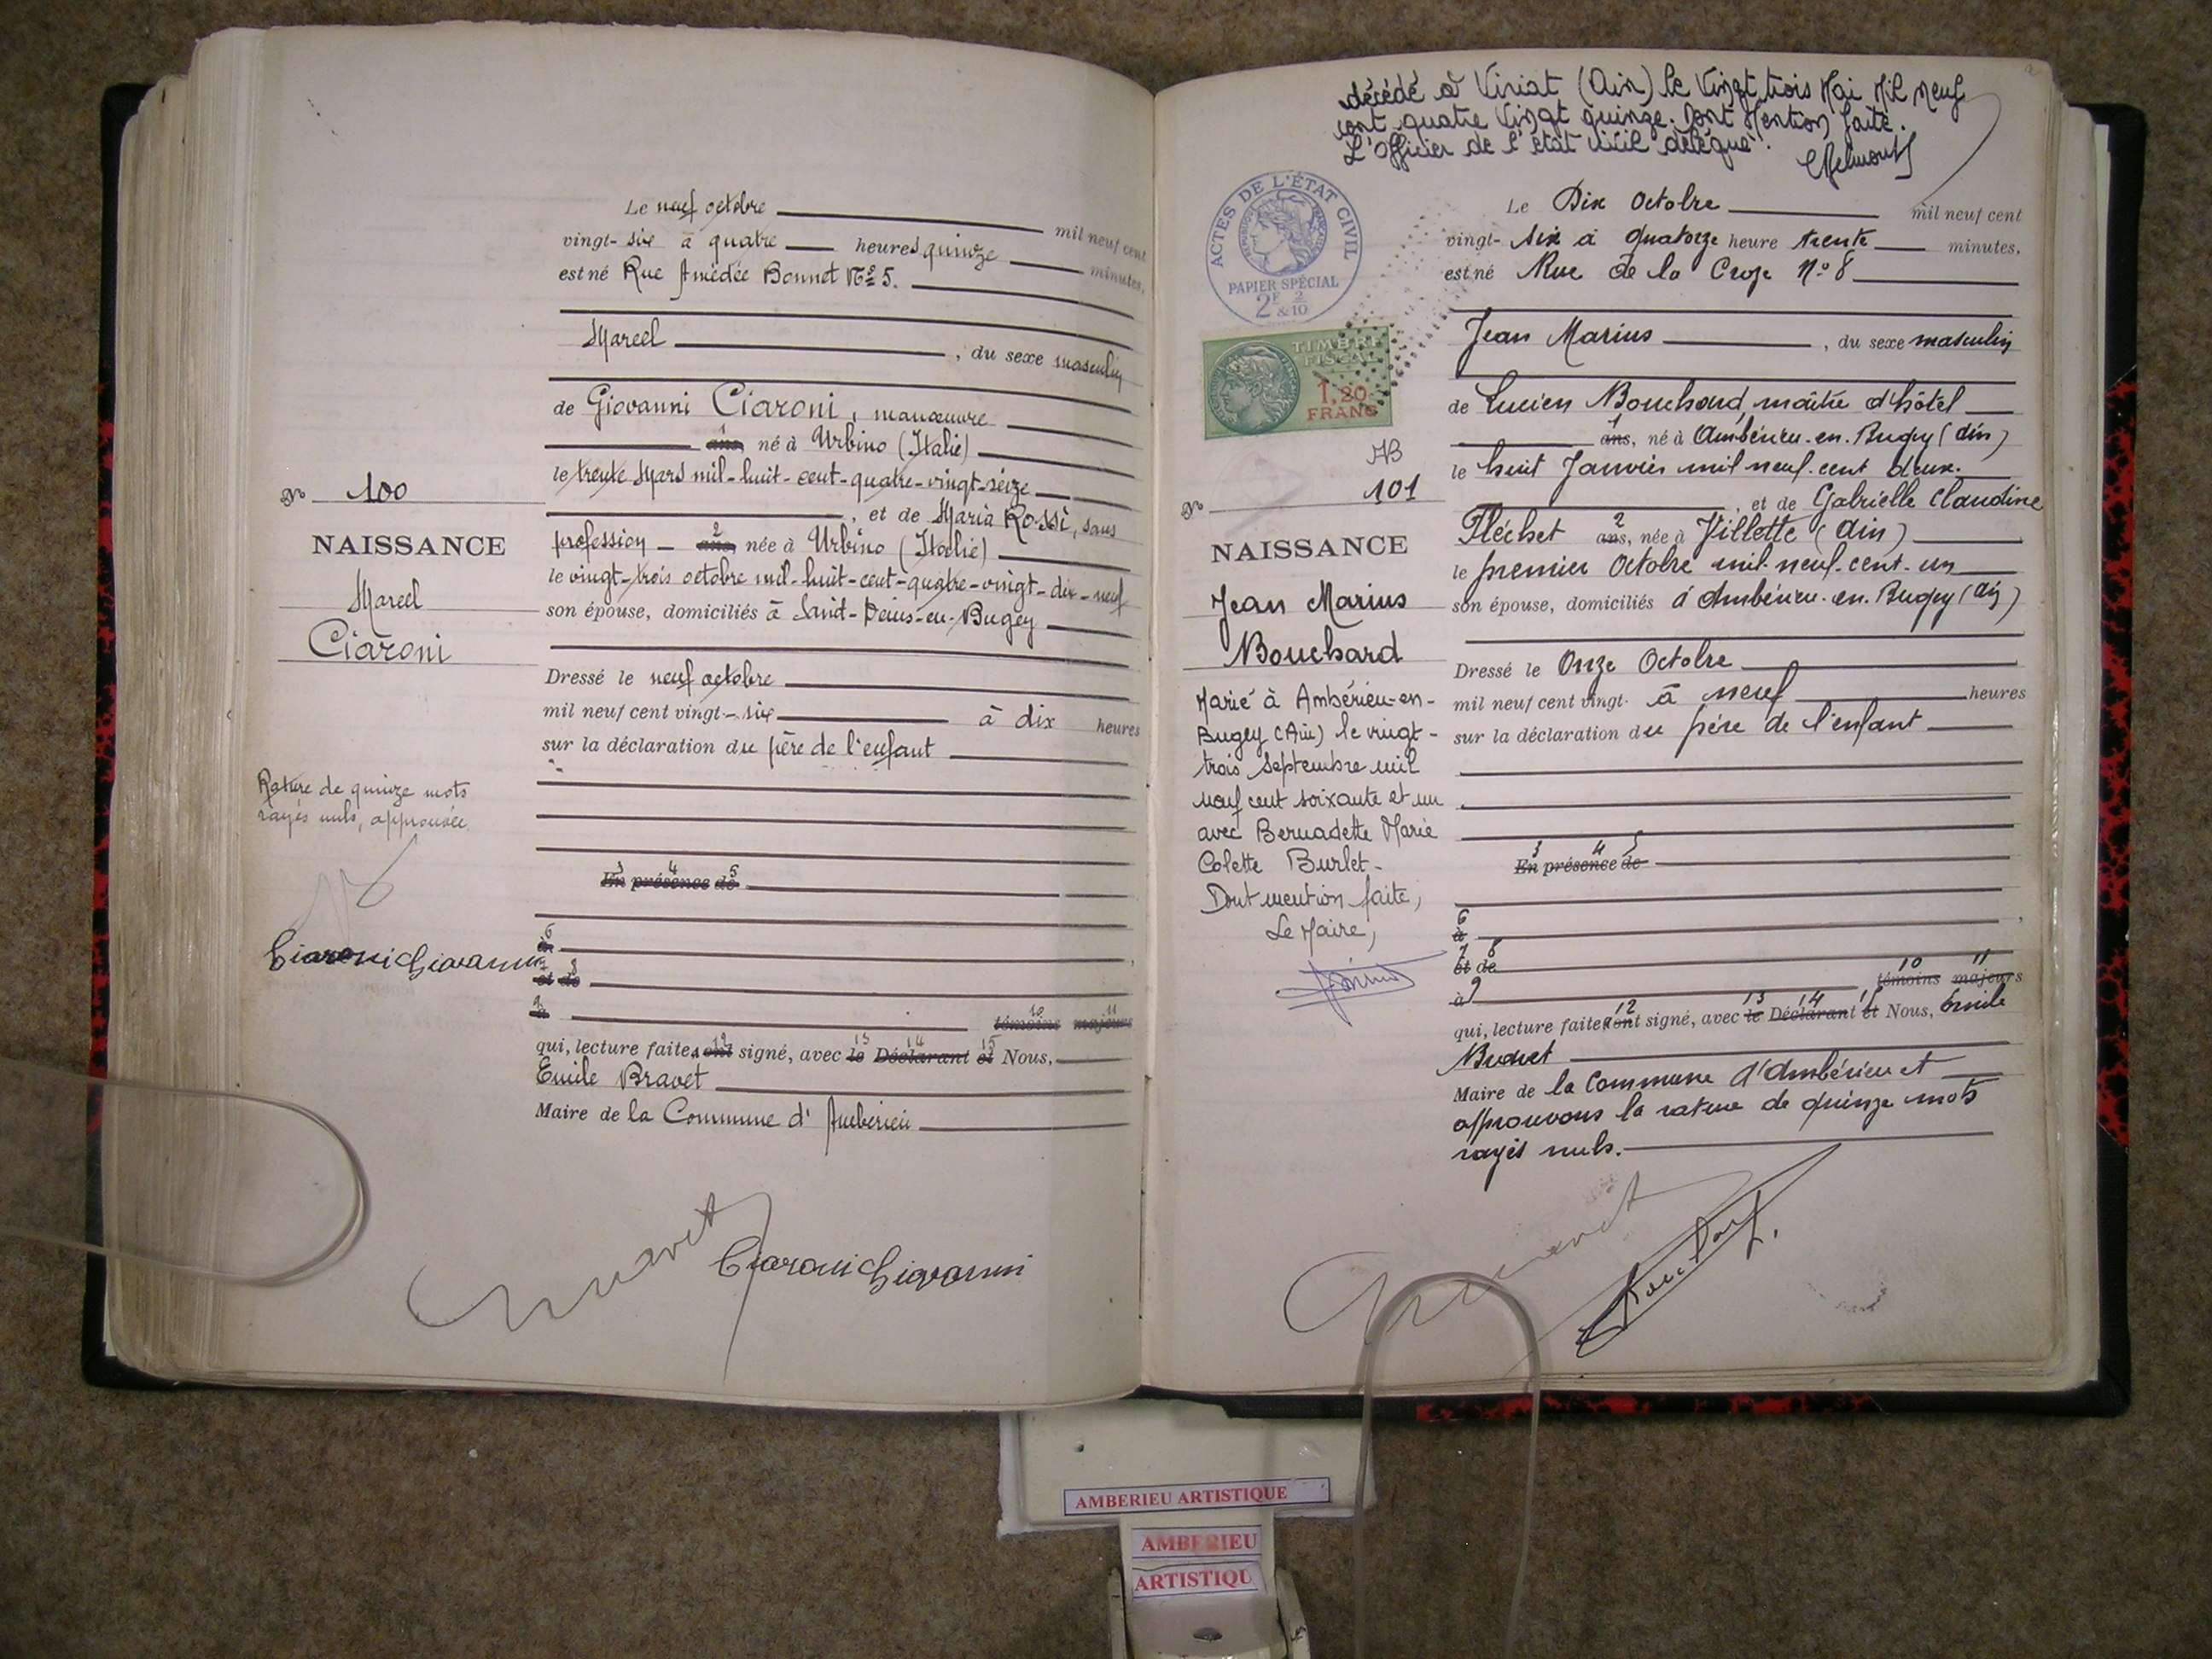 Le neuf octobre mil neuf cent
vingt-six à quatre heures quinze minutes,
est né Rue Amédée Bonnet Nº 5.
Marcel, du sexe masculin
de Giovanni Ciaroni, manœuvre
ans, né à Urbino (Italie)
le trente Mars mil-huit-cent-quatre-vingt-seize
, et de Maria Rossi, sans
profession - ans, née à Urbino (Italie)
le vingt-trois octobre mil-huit-cent-quatre-vingt-dix-neuf
son épouse, domiciliés à Saint-Denis-en-Bugey
Dressé le neuf octobre
mil neuf cent vingt-six à dix heures
sur la déclaration du père de l'enfant
En présence de
à
et de
à témoins majeurs
qui, lecture faite, ont signé, avec le Déclarant et Nous,
Emile Bravet
Maire de la Commune d'Ambérieu
Nº 100
NAISSANCE
Marcel
Ciaroni
Rature de quinze mots
rayés nuls, approuvée.
Ciaroni Giovanni
Bravet
Ciaroni Giovanni
décédé à Viriat (Ain) le Vingt trois Mai Mil neuf
cent quatre Vingt quinze. Dont Mention faite.
L'Officier de l'état civil délégué.
ACTES DE L'ÉTAT CIVIL
PAPIER SPÉCIAL
2F & 2/10
TIMBRE
FISCAL
1,20
FRANC
Le Dix Octobre mil neuf cent
vingt-six à quatorze heure trente minutes,
est né Rue de la Croze Nº 8
Jean Marius, du sexe masculin
de Lucien Bouchard maître d'hôtel
ans, né à Ambérieu-en-Bugey (Ain)
le huit Janvier mil neuf-cent deux.
, et de Gabrielle Claudine
Fléchet ans, née à Villette (Ain)
le premier Octobre mil-neuf-cent-un
son épouse, domiciliés à Ambérieu-en-Bugey (Ain)
Dressé le Onze Octobre
mil neuf cent vingt- à neuf heures
sur la déclaration du père de l'enfant
En présence de
à
et de
à témoins majeurs
qui, lecture faite, ont signé, avec le Déclarant et Nous, Emile
Bravet
Maire de la Commune d'Ambérieu et
approuvons la rature de quinze mots
rayés nuls.
Nº 101
NAISSANCE
Jean Marius
Bouchard
Marié à Ambérieu-en-
Bugey (Ain) le vingt-
trois septembre mil
neuf cent soixante et un
avec Bernadette Marie
Colette Burlet.
Dont mention faite,
Le Maire,
Bravet
Bouchard
AMBERIEU ARTISTIQUE
AMBERIEU
ARTISTIQU